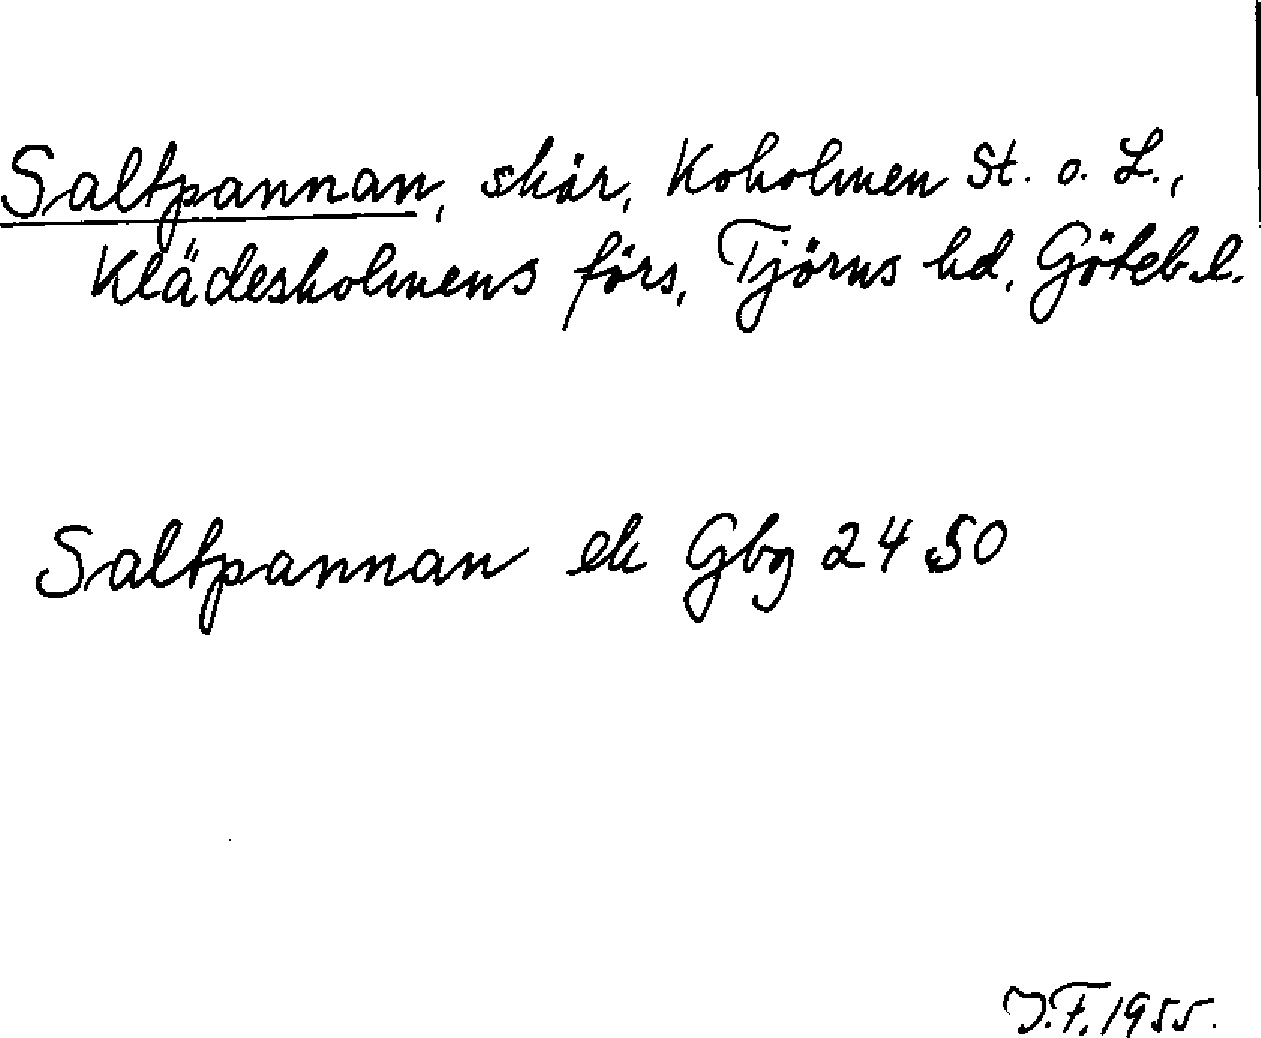 Saltpannan, skär, Koholmen St. o. L.,
Klädesholmens förs, Tjörns hd, Göteb. l.
Saltpannan ek Gbg 24 SO
J.F. 1955.